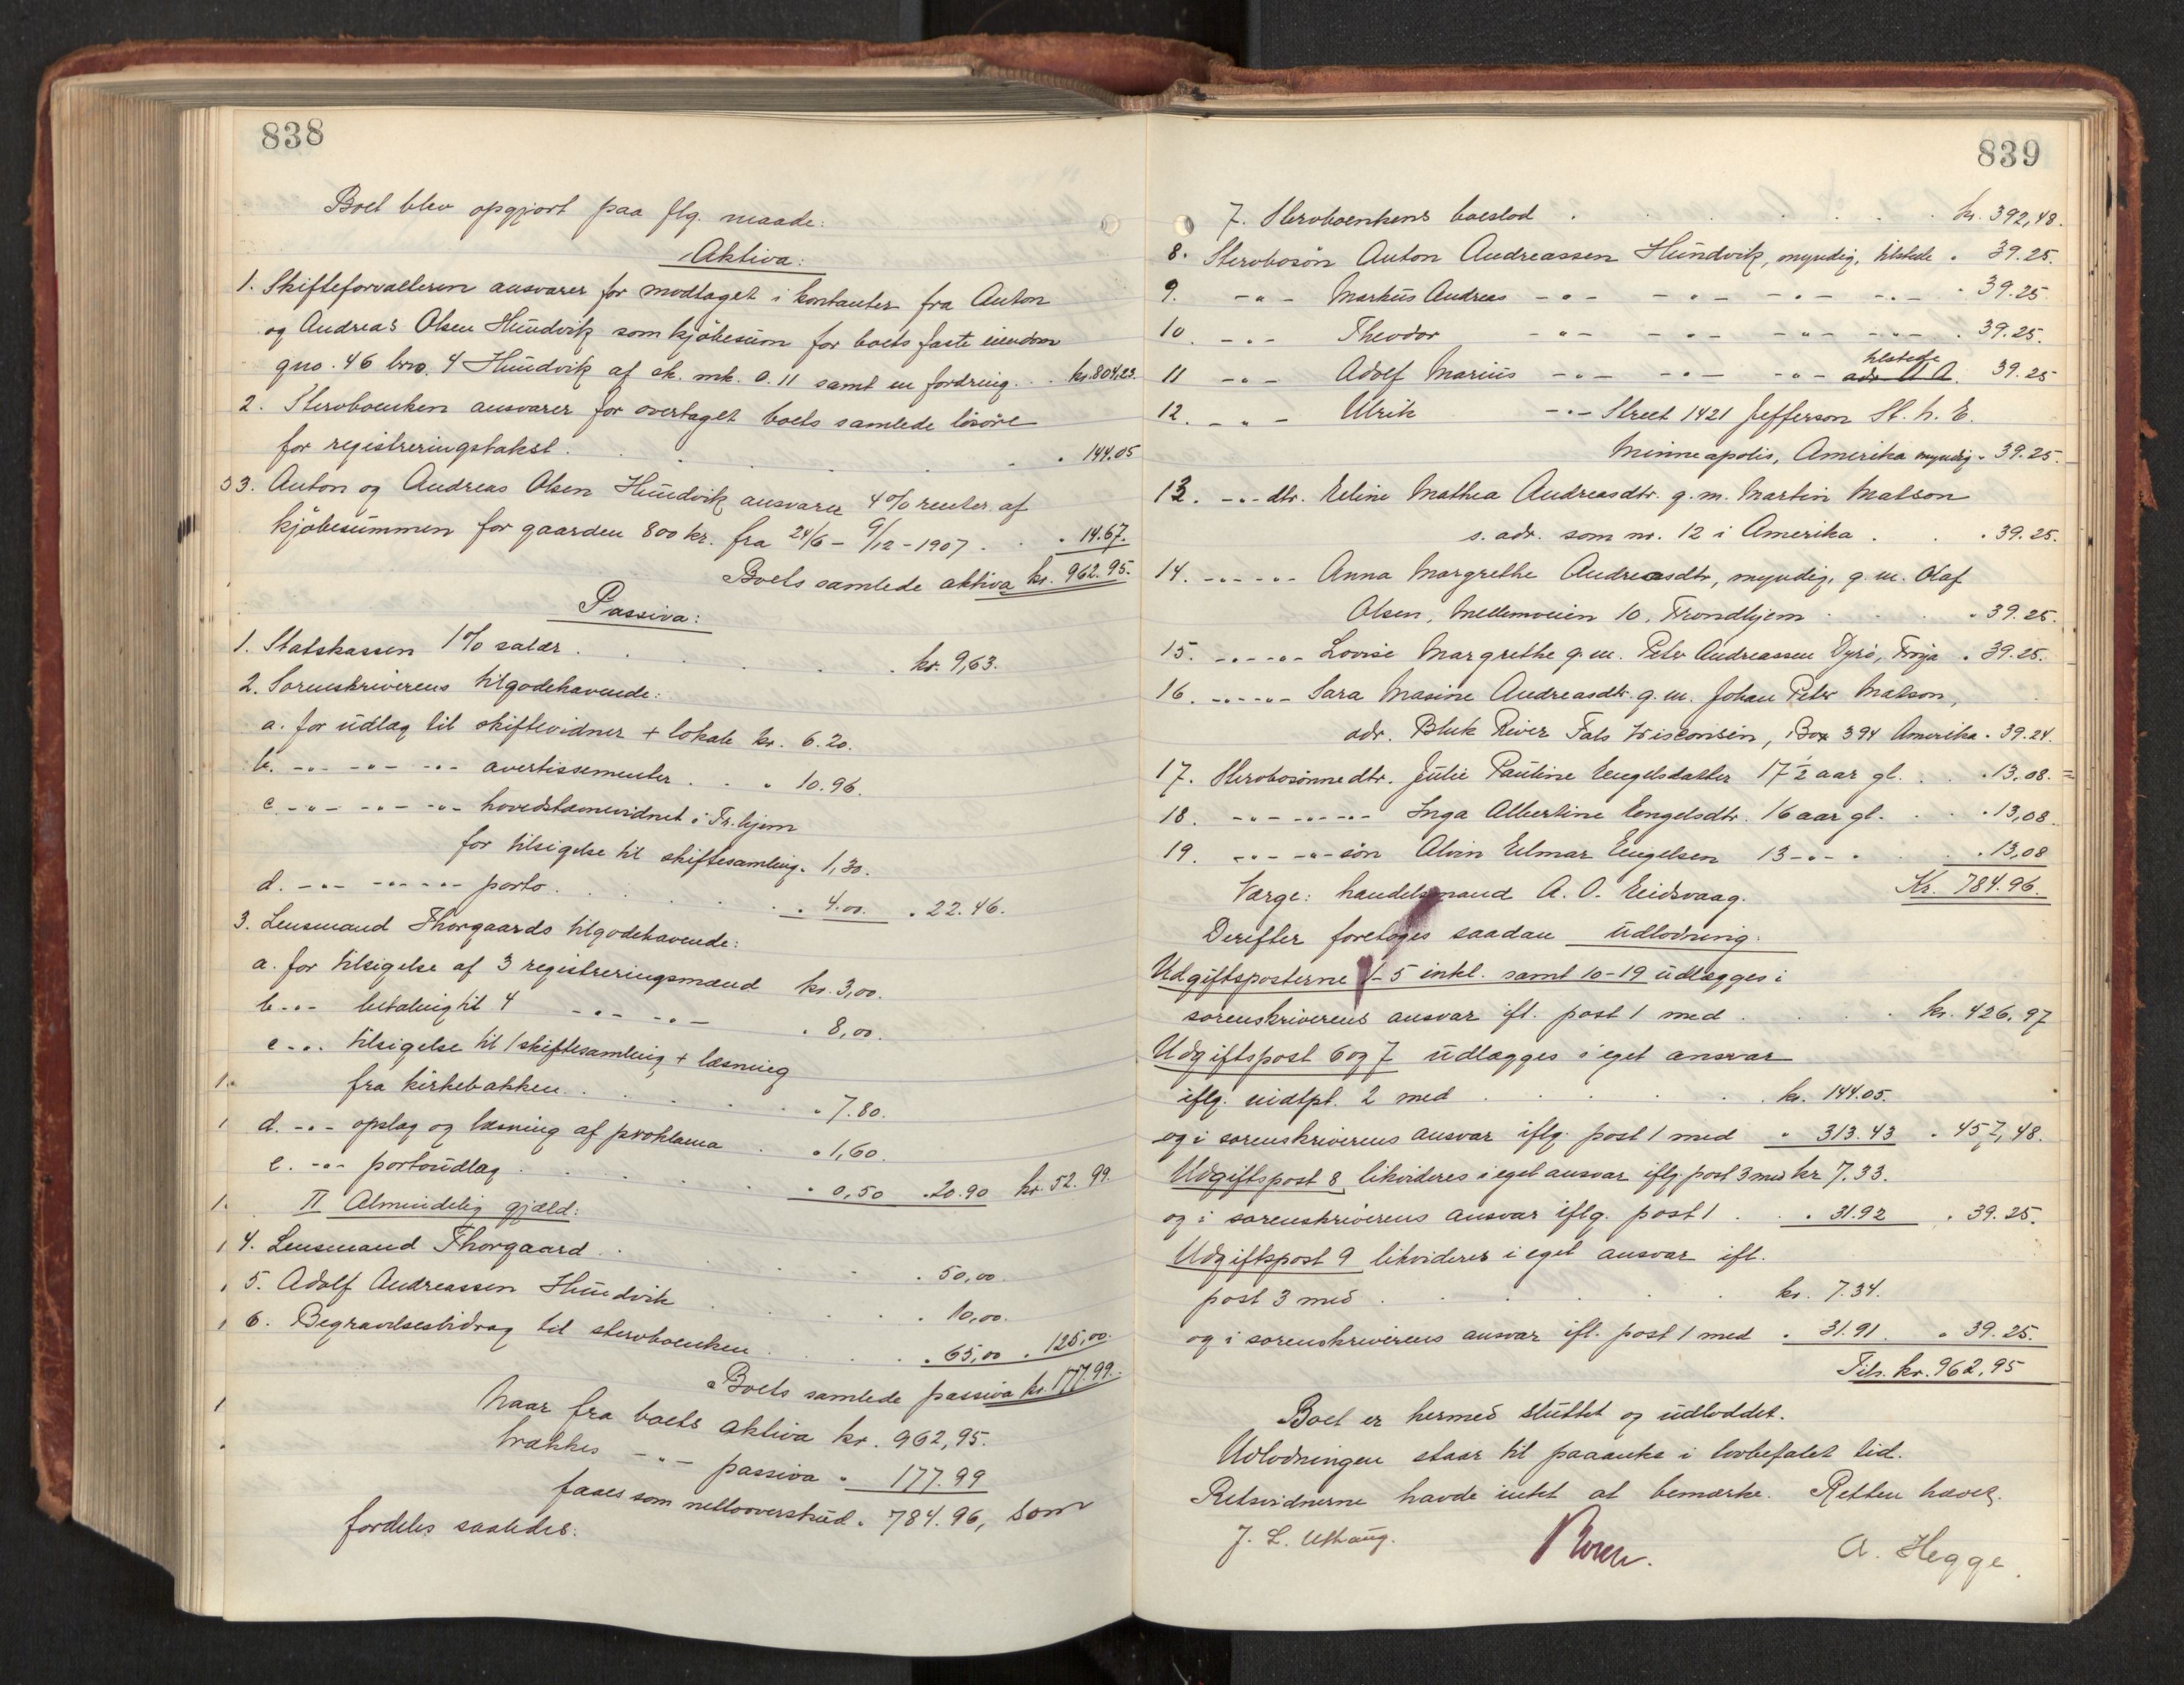 838
Boet blev opgjort paa flg. maade:
Aktiva:
1. Skifteforvalteren ansvarer for modtaget i kontanter fra Anton
og Andreas Olsen Hundvik som kjöbesum for boets faste eiendom
gno. 46 brno. 4 Hundvik af sk. mk. 0.11 samt en fordring . . kr. 804,23.
2. Stervboenken ansvarer for overtaget boets samlede lösöre
for registreringstakst . . . . . 144.05
3. Anton og Andreas Olsen Hundvik ansvarer 4% renter af
kjöbesummen for gaarden 800 kr. fra 24/6 - 9/12 - 1907 . . . 14.67.
Boets samlede aktiva kr. 962.95.
Passiva:
1. Statskassen 1% salær . . . . . kr. 9,63.
2. Sorenskriverens tilgodehavende:
a. for udlæg til skiftevidner + lokale kr. 6.20.
b. -"- -"- -"- avertissementer . . " 10.96.
c -"- -"- -"- hovedstævnevidnet i Tr.hjem
for tilsigelse til skiftesamling " 1,30.
d. -"- -"- -"- porto . . . . " 4.00. " 22.46.
3. Lensmand Thorgaards tilgodehavende:
a. for tilsigelse af 3 registreringsmænd kr. 3,00.
b -"- betaling til 4 -"- -"- " 8,00.
c -"- tilsigelse til 1 skiftesamling + læsning
fra kirkebakken . . . . . " 7.80.
d. -"- opslag og læsning af proklama . " 1,60.
e. -"- portoudlæg . . . . . " 0,50 " 20.90 kr. 52.99.
II Almindelig gjæld:
4. Lensmand Thorgaard . . . . " 50,00.
5. Adolf Andreassen Hundvik . . . . " 10,00.
6. Begravelsesbidrag til stervboenken . . . . " 65,00 " 125,00.
Boets samlede passiva kr. 177.99.
Naar fra boets aktiva kr. 962,95.
trækkes -"- passiva " 177.99
faaes som nettooverskud " 784.96, som
fordeles saaledes:
839
7. Stervboenkens boeslod . . . . . . kr. 392,48.
8. Stervbosön Anton Andreassen Hundvik, myndig, tilstede " 39.25.
9. -"- Markus Andreas -"- -"- -"- -"- " 39.25.
10. -"- Theodor -"- -"- -"- -"- " 39.25.
tilstede
11 -"- Adolf Marius -"- -"- -"- adr. U A. 39.25
12. -"- Ulrik -"- Street 1421 Jefferson St. N. E.
Minneapolis, Amerika myndig " 39.25.
13. -"- dtr. Eeline Mathea Andreasdtr. g. m. Martin Matson
s. adr. som nr. 12 i Amerika . . . 39.25.
14. -"- -"- Anna Margrethe Andreasdtr, myndig, g. m. Olaf
Olsen, Mellemveien 10, Trondhjem . . . . " 39.25.
15. -"- -"- Lovise Margrethe g. m. Peter Andreassen Dyrö, Fröja " 39.25.
16. -"- -"- Sara Masine Andreasdtr. g. m. Johan Peter Matson,
adr. Blæk River Fals Wisconsin, Box 394 Amerika " 39.24.
17. Stervbosönnedtr. Julie Pauline Engelsdatter 17 1/2 aar gl. . . " 13,08.
18. -"- -"- Inga Albertine Engelsdtr. 16 aar gl. . . " 13,08.
19. -"- -"- sön Alvin Eelmar Engelsen 13 -"- " . . " 13,08
Kr. 784.96.
Værge: handelsmand A. O. Eidsvaag.
Derefter foretoges saadan udlodning.
Udgiftsposterne 1-5 inkl. samt 10-19 udlægges i
sorenskriverens ansvar ifl. post 1 med . . . . kr. 426,97
Udgiftspost 6 og 7 udlægges i eget ansvar
iflg. indtpt. 2 med . . . . . kr. 144.05.
og i sorenskriverens ansvar iflg. post 1 med " 313.43 " 457,48.
Udgiftspost 8 likvideres i eget ansvar iflg. post 3 med kr 7.33.
og i sorenskriverens ansvar iflg. post 1 . . " 31.92 " 39.25.
Udgiftspost 9 likvideres i eget ansvar ifl.
post 3 med . . . . . kr. 7.34.
og i sorenskriverens ansvar ifl. post 1 med " 31.91. " 39.25.
Tils. kr. 962,95
Boet er hermed sluttet og udloddet.
Udlodningen staar til paaanke i lovbefalet tid.
Retsvidnerne havde intet at bemærke. Retten hævet.
J. L. Uthaug.
A. Hegge.